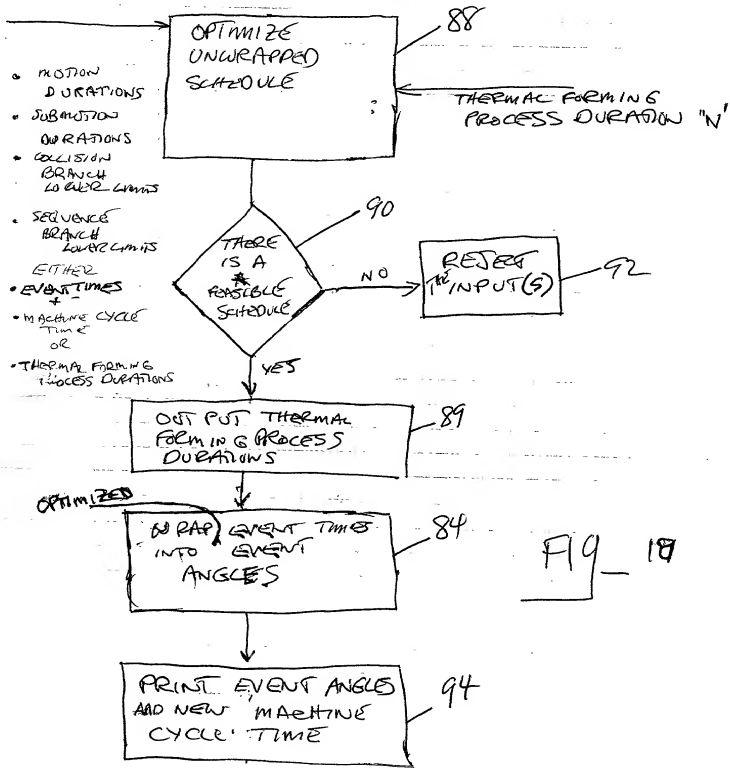 OPTIMIZE
UNWRAPPED
SCHEDULE
88
• MOTION
DURATIONS
• SUBMOTION
DURATIONS
• COLLISION
BRANCH
LOWER LIMITS
• SEQUENCE
BRANCH
LOWER LIMITS
EITHER
• EVENT TIMES
+
• MACHINE CYCLE
TIME
OR
• THERMAL FORMING
PROCESS DURATIONS
THERMAL FORMING
PROCESS DURATION "N"
THERE
IS A
FEASIBLE
SCHEDULE
90
NO
REJECT
THE INPUT(S)
92
YES
OUT PUT THERMAL
FORMING PROCESS
DURATIONS
89
OPTIMIZED
WRAP EVENT TIMES
INTO EVENT
ANGLES
84
FIG_ 18
PRINT EVENT ANGLES
AND NEW MACHINE
CYCLE TIME
94